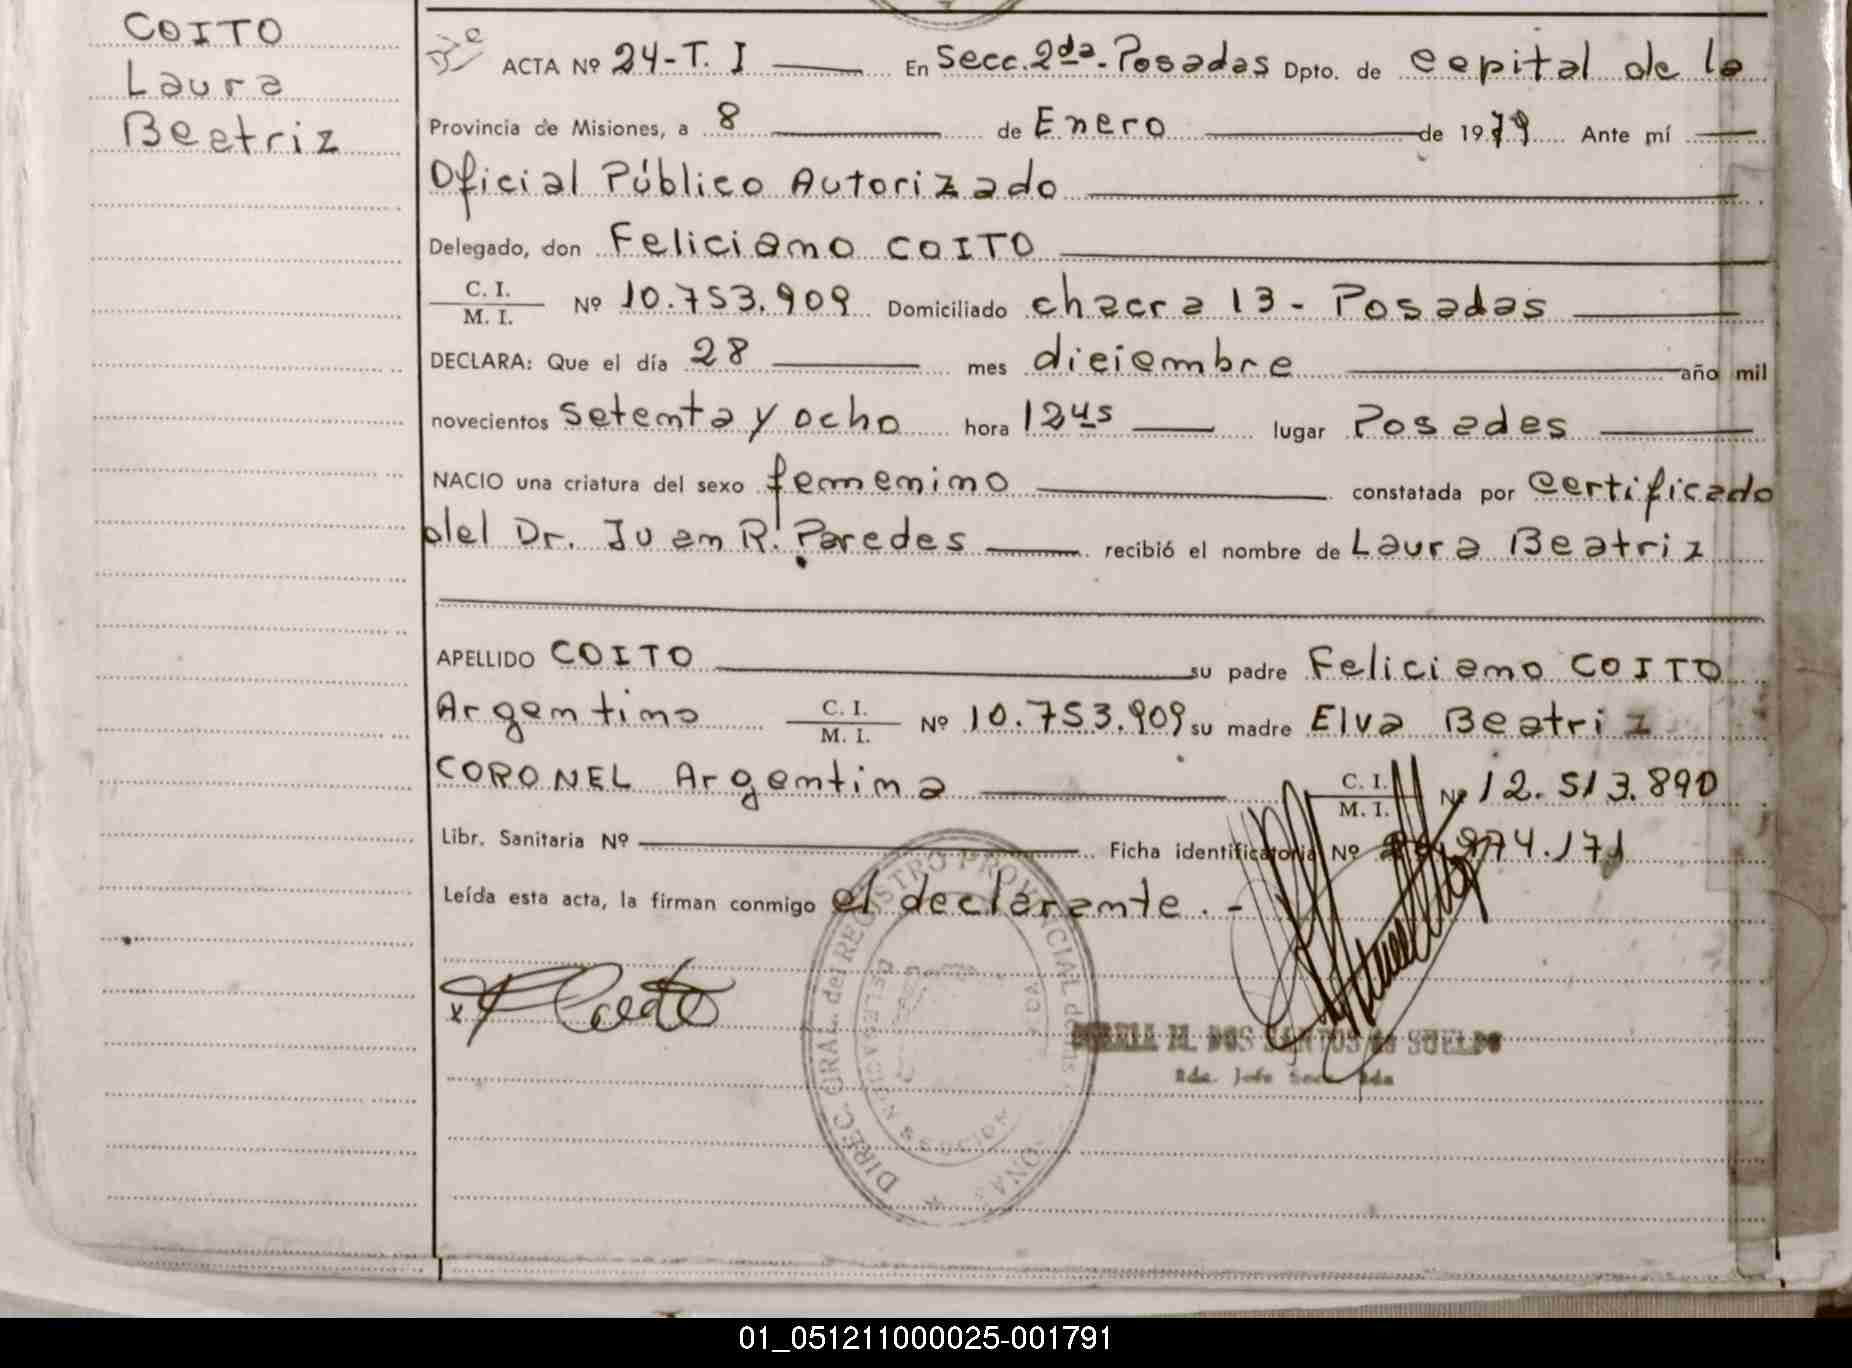 COITO
Laura
Beatriz
ACTA Nº 24-T. I En Secc. 2da. Posadas Dpto. de capital de la
Provincia de Misiones, a 8 de Enero de 1979 Ante mí
Oficial Público Autorizado
Delegado, don Feliciano COITO
C. I. / M. I. Nº 10.753.909 Domiciliado chacra 13 - Posadas
DECLARA: Que el día 28 mes diciembre año mil
novecientos setenta y ocho hora lugar Posadas
NACIO una criatura del sexo femenino constatada por certificado
del Dr. Juan R. Paredes recibió el nombre de Laura Beatriz
APELLIDO COITO su padre Feliciano COITO
Argentino C. I. / M. I. Nº 10.753.909 su madre Elva Beatriz
CORONEL Argentina C. I. / M. I. Nº 12.513.890
Libr. Sanitaria Nº Ficha identificatoria Nº 974.171
Leída esta acta, la firman conmigo el declarante. -
DIREC. GRAL. del REGISTRO PROVINCIAL de las
DELEGACION
M. DOS SANTOS de SUELDO
01_051211000025-001791